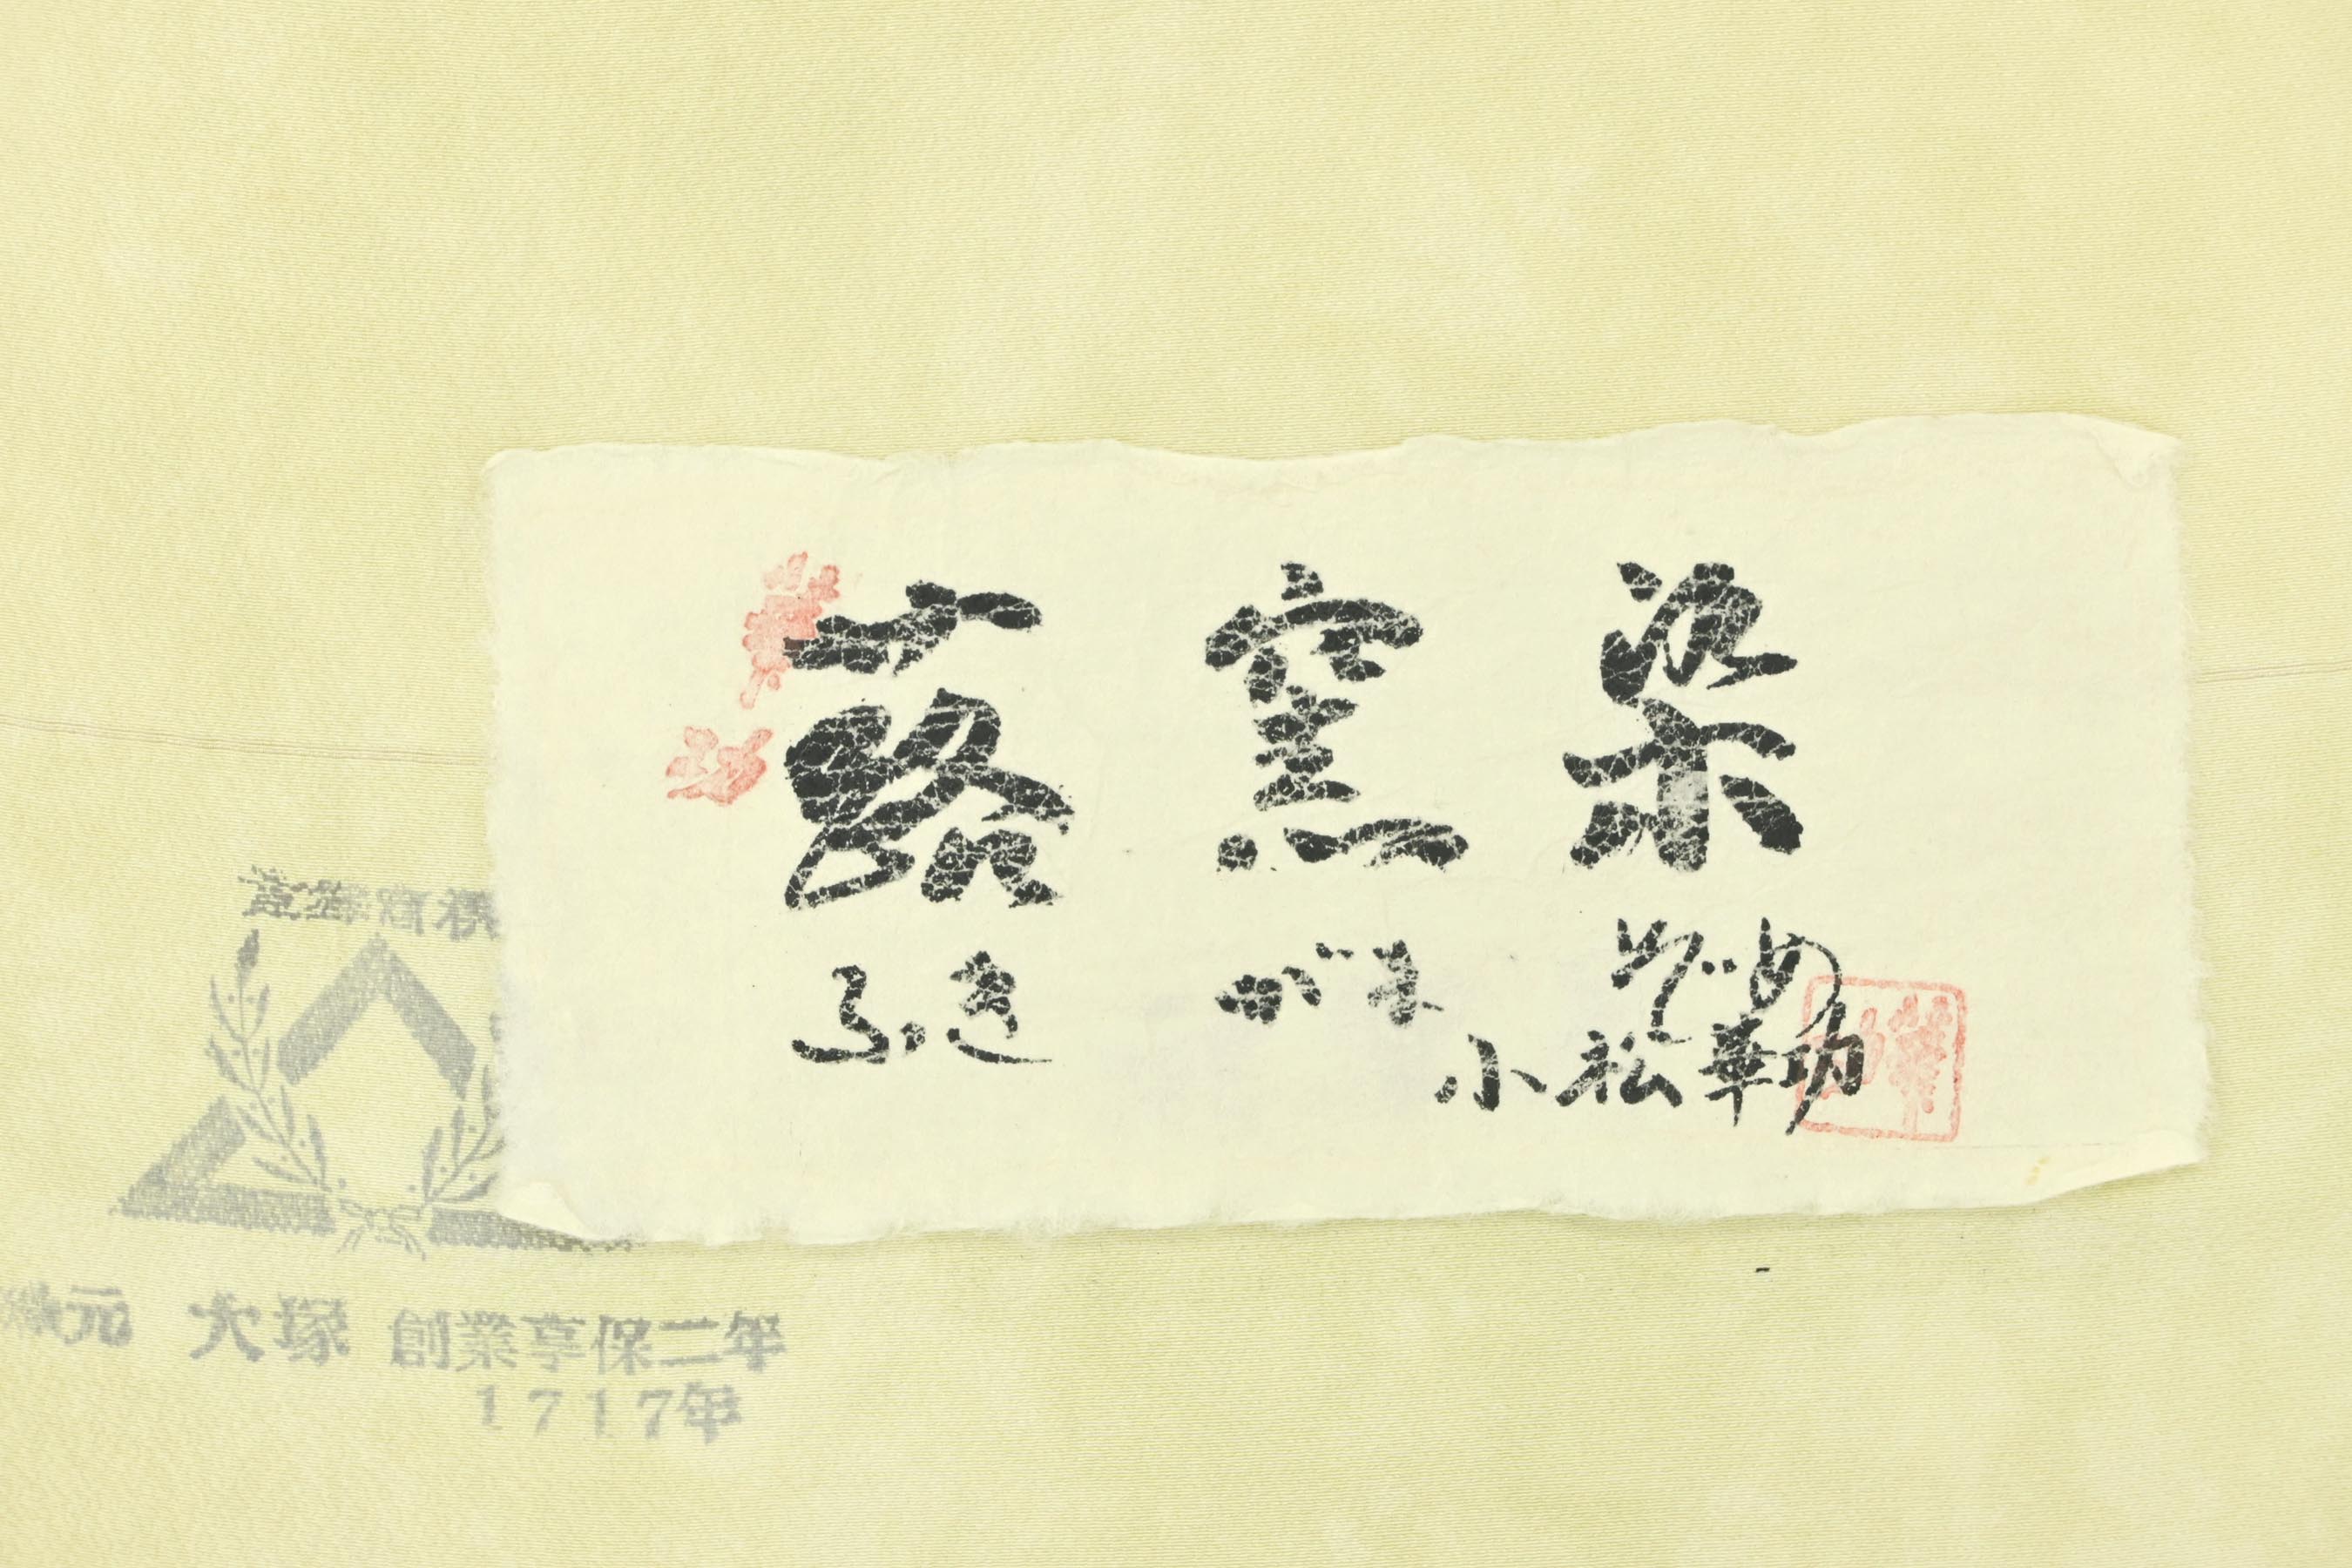 蕗 窯 染
ふき がま ぞめ
小松華功
華功
登録商標
元 大塚 創業享保二年
1717年